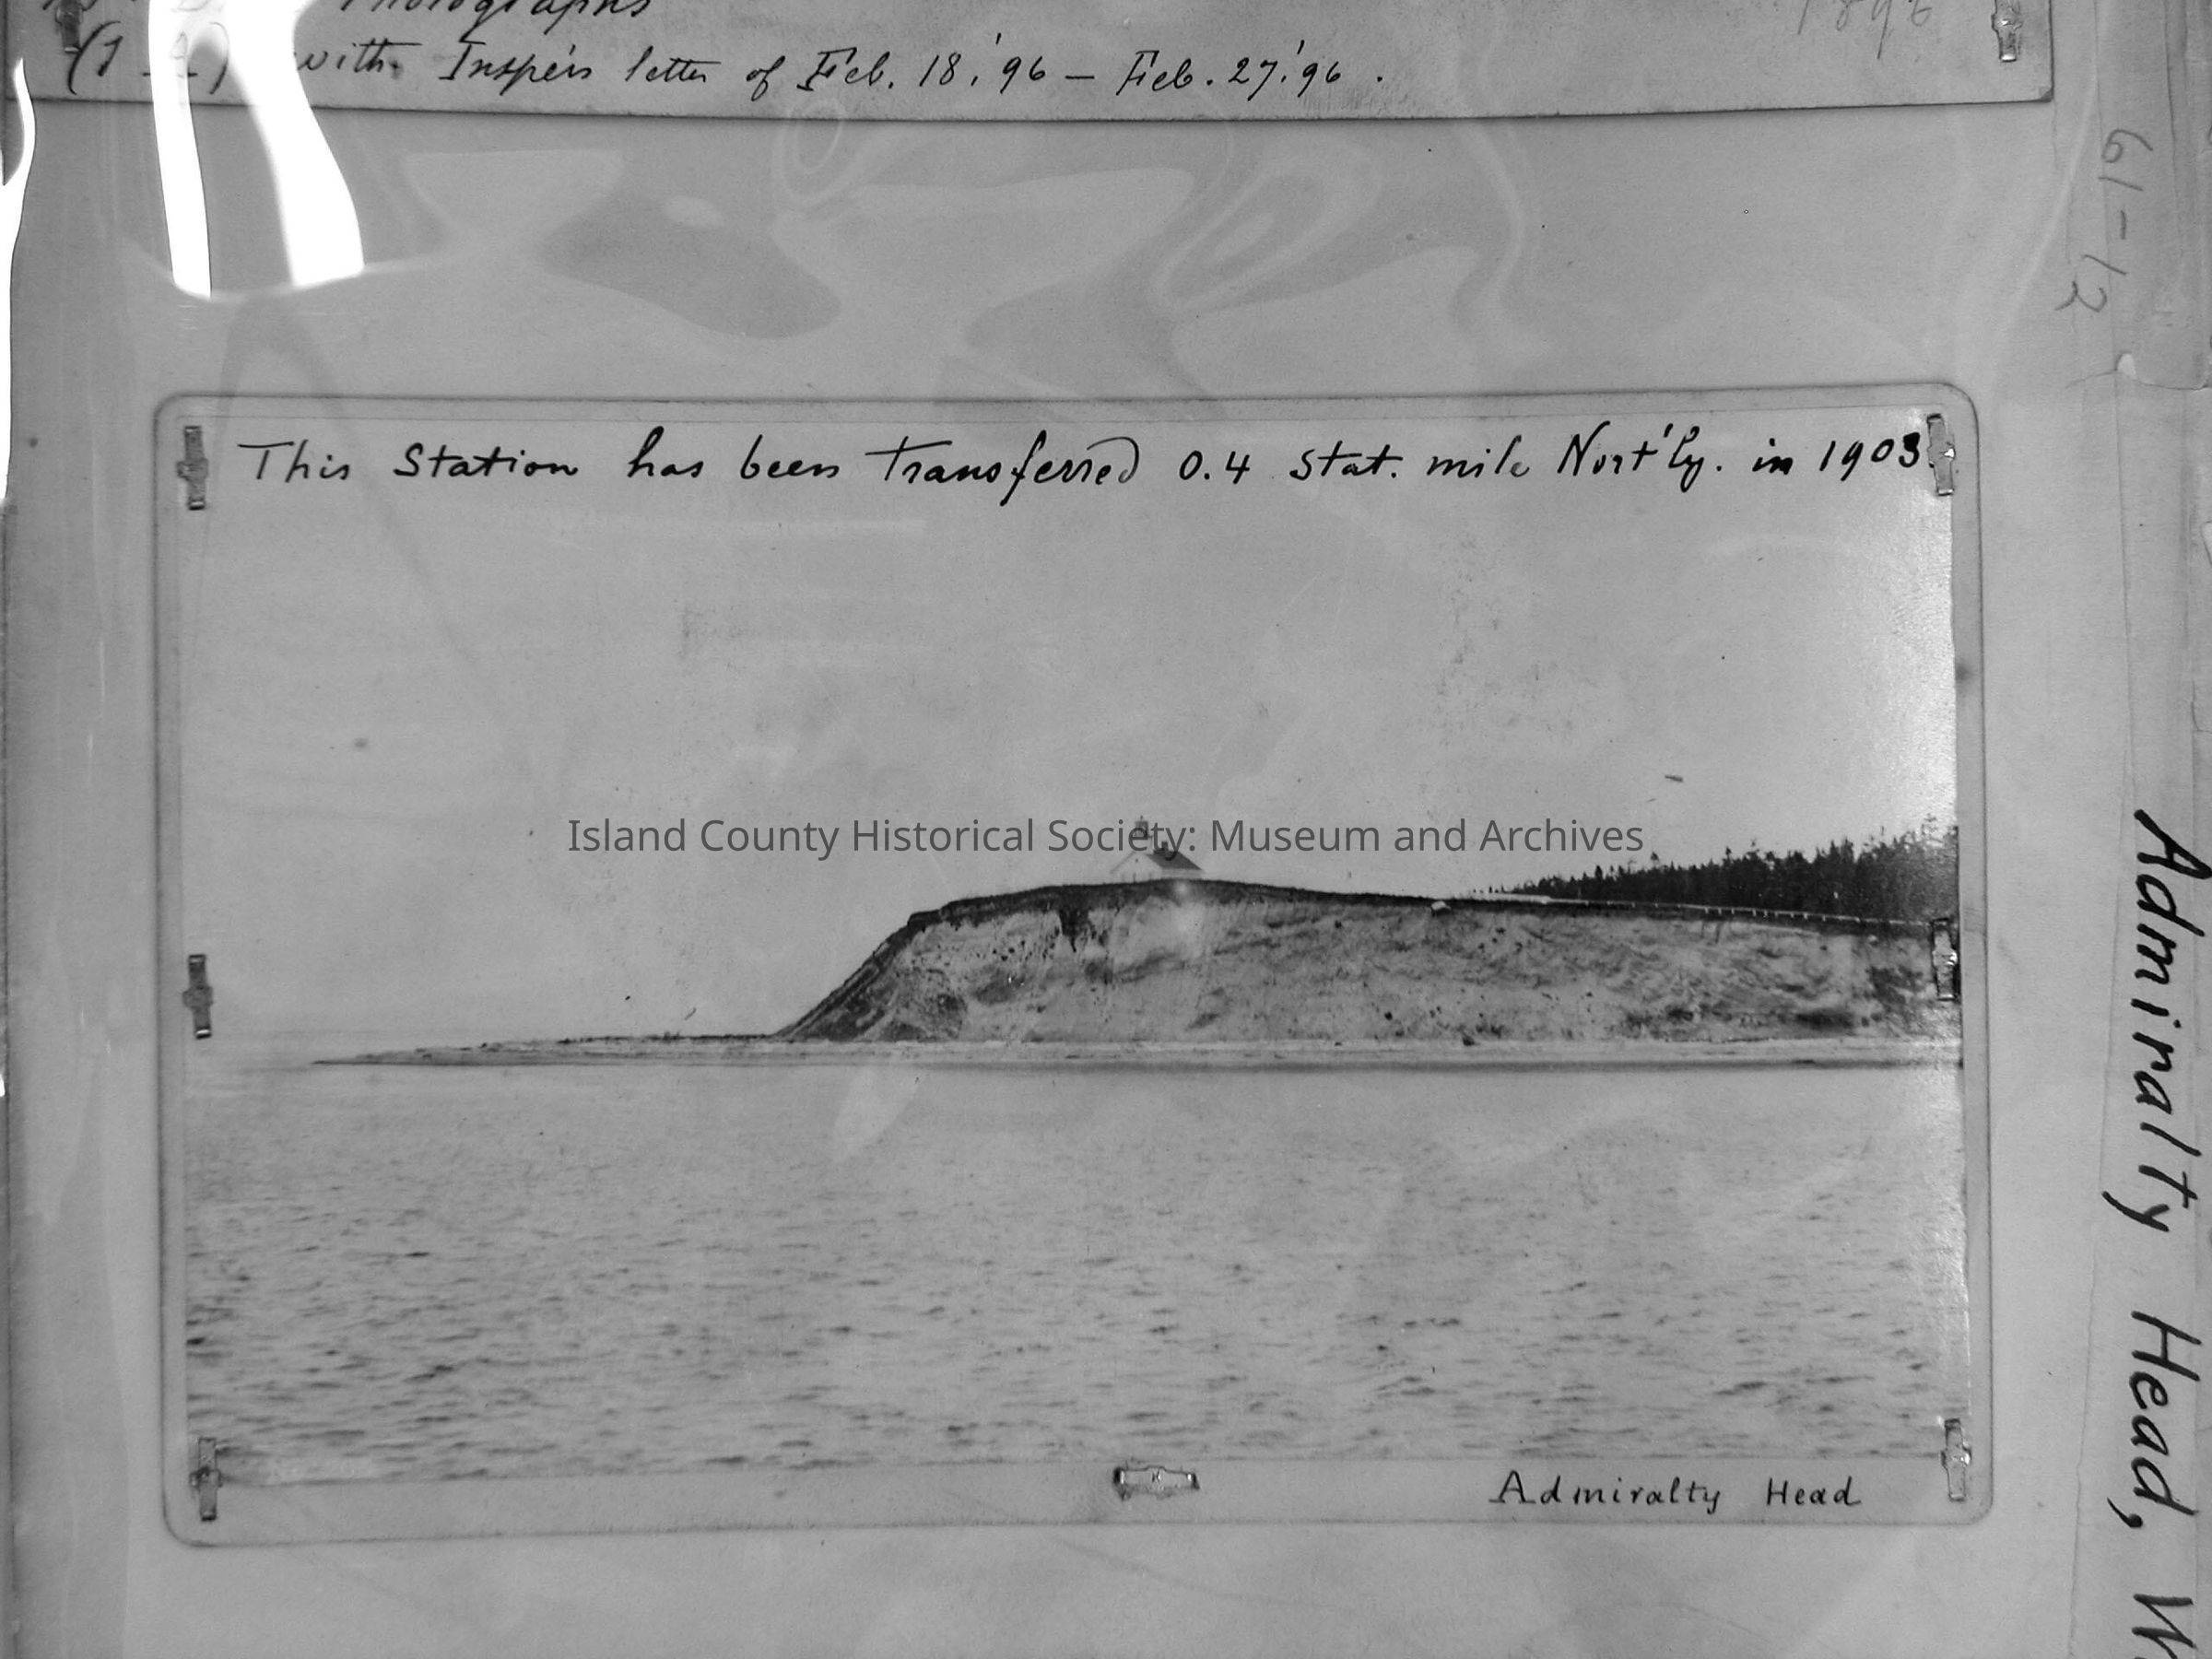 Photographs
with Insper's letter of Feb. 18, '96 — Feb. 27, '96.
1896
61-12
This Station has been transferred 0.4 Stat. mile Nort'ly. in 1903
Island County Historical Society: Museum and Archives
Admiralty Head
Admiralty Head, W